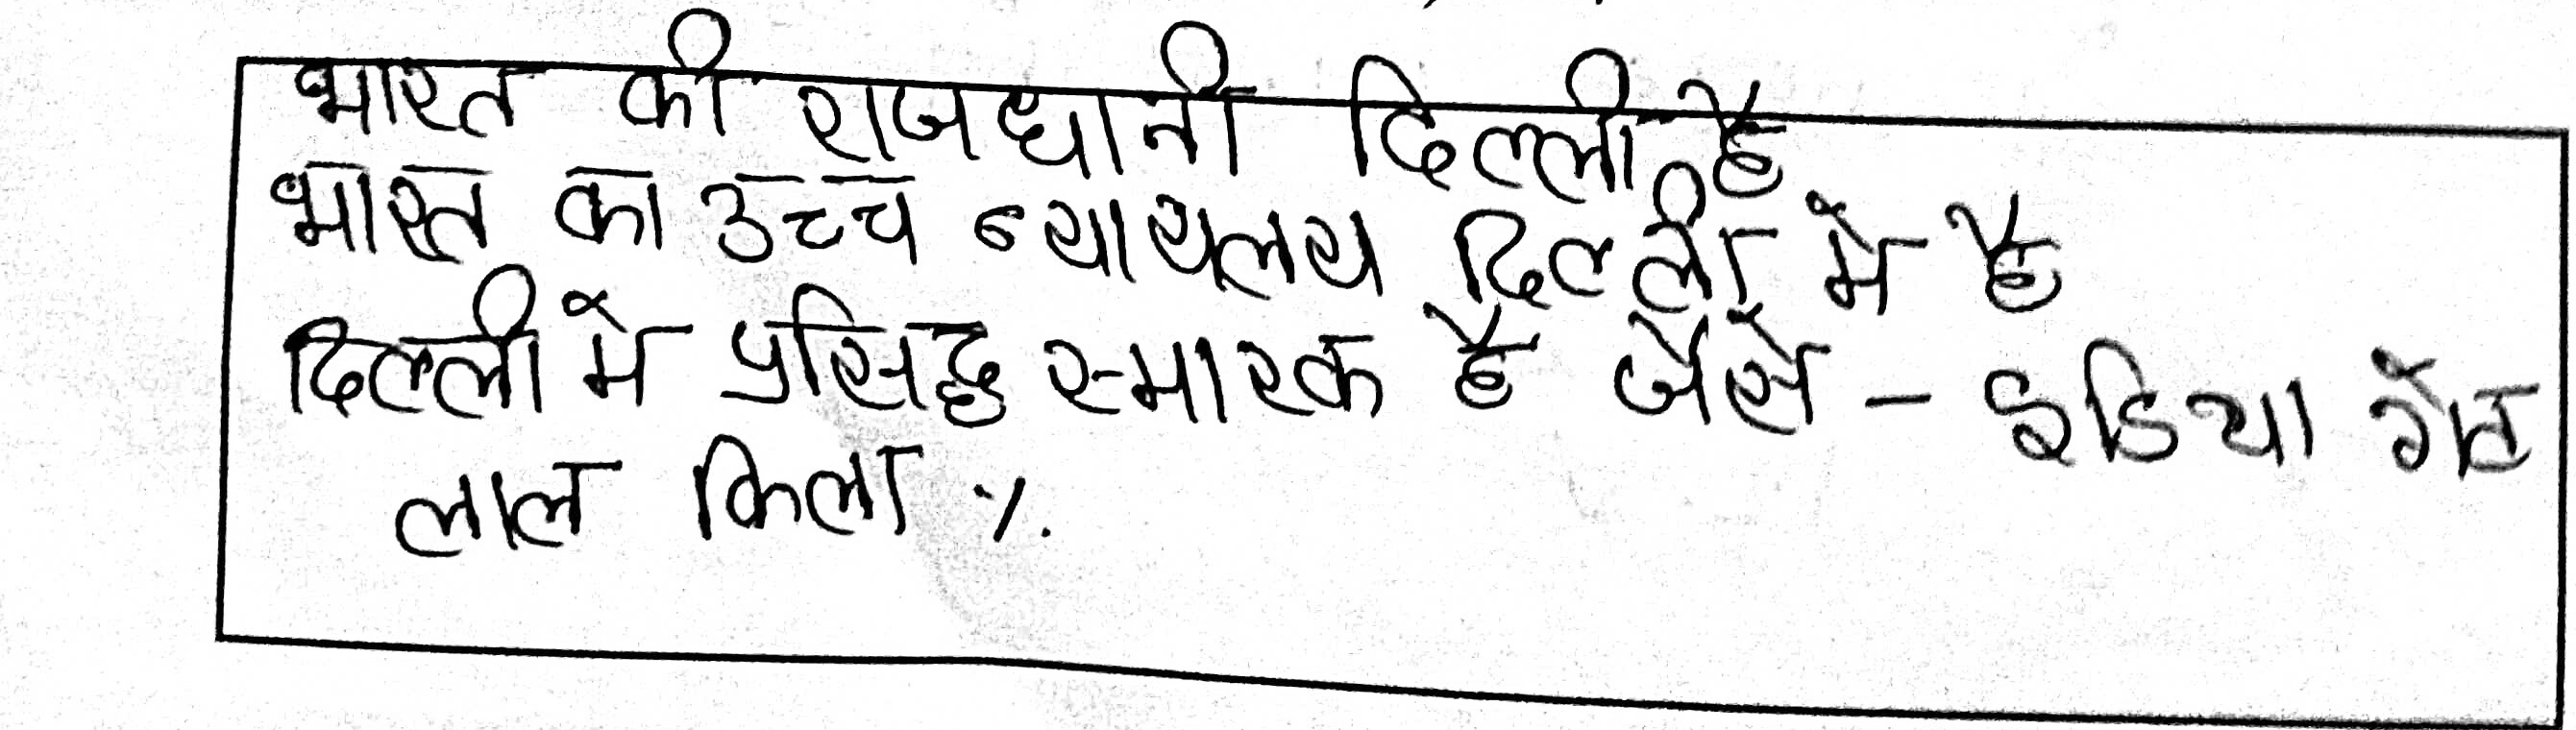 भारत की राजधानी दिल्ली है
भारत का उच्च न्यायलय दिल्ली में है
दिल्ली में प्रसिद्ध स्मारक है जैसे - इंडिया गेट
लाल किला ٪.